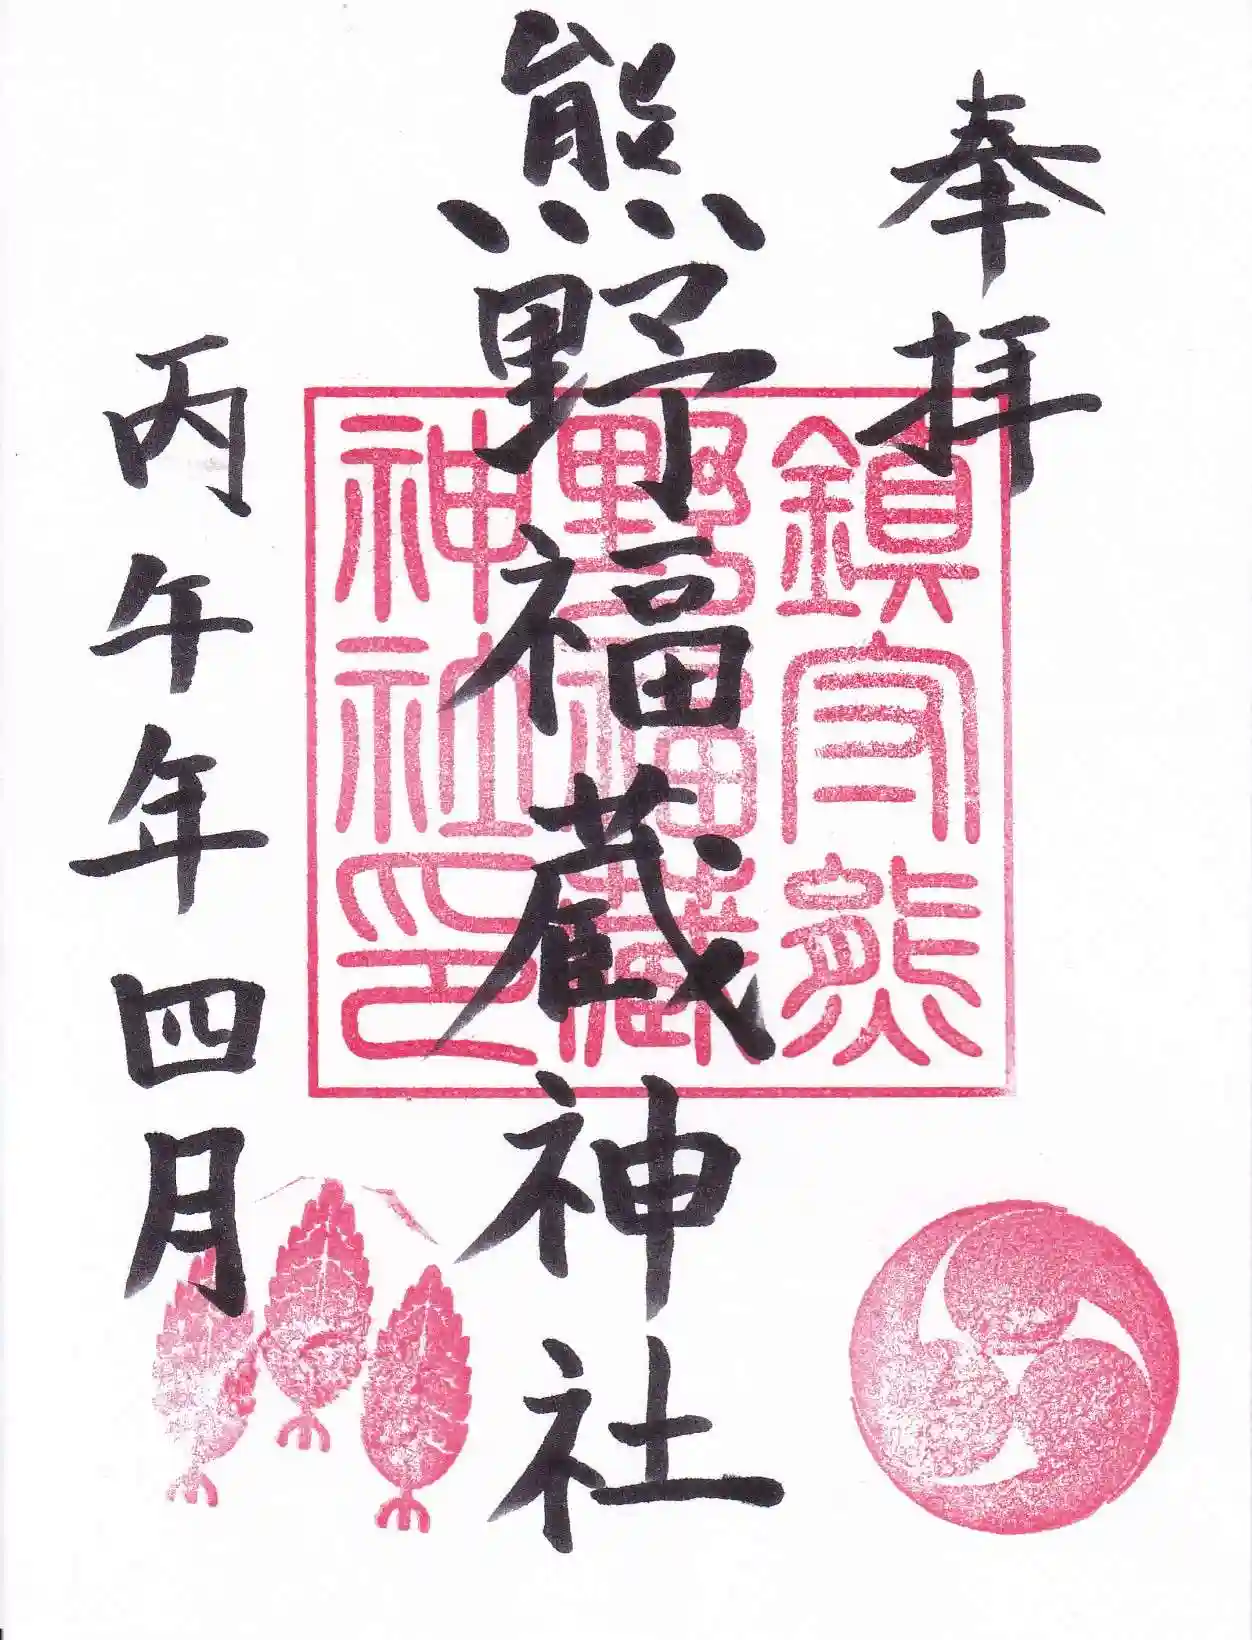 奉拝
熊野福蔵神社
丙午年四月
鎮守熊
野福蔵
神社印